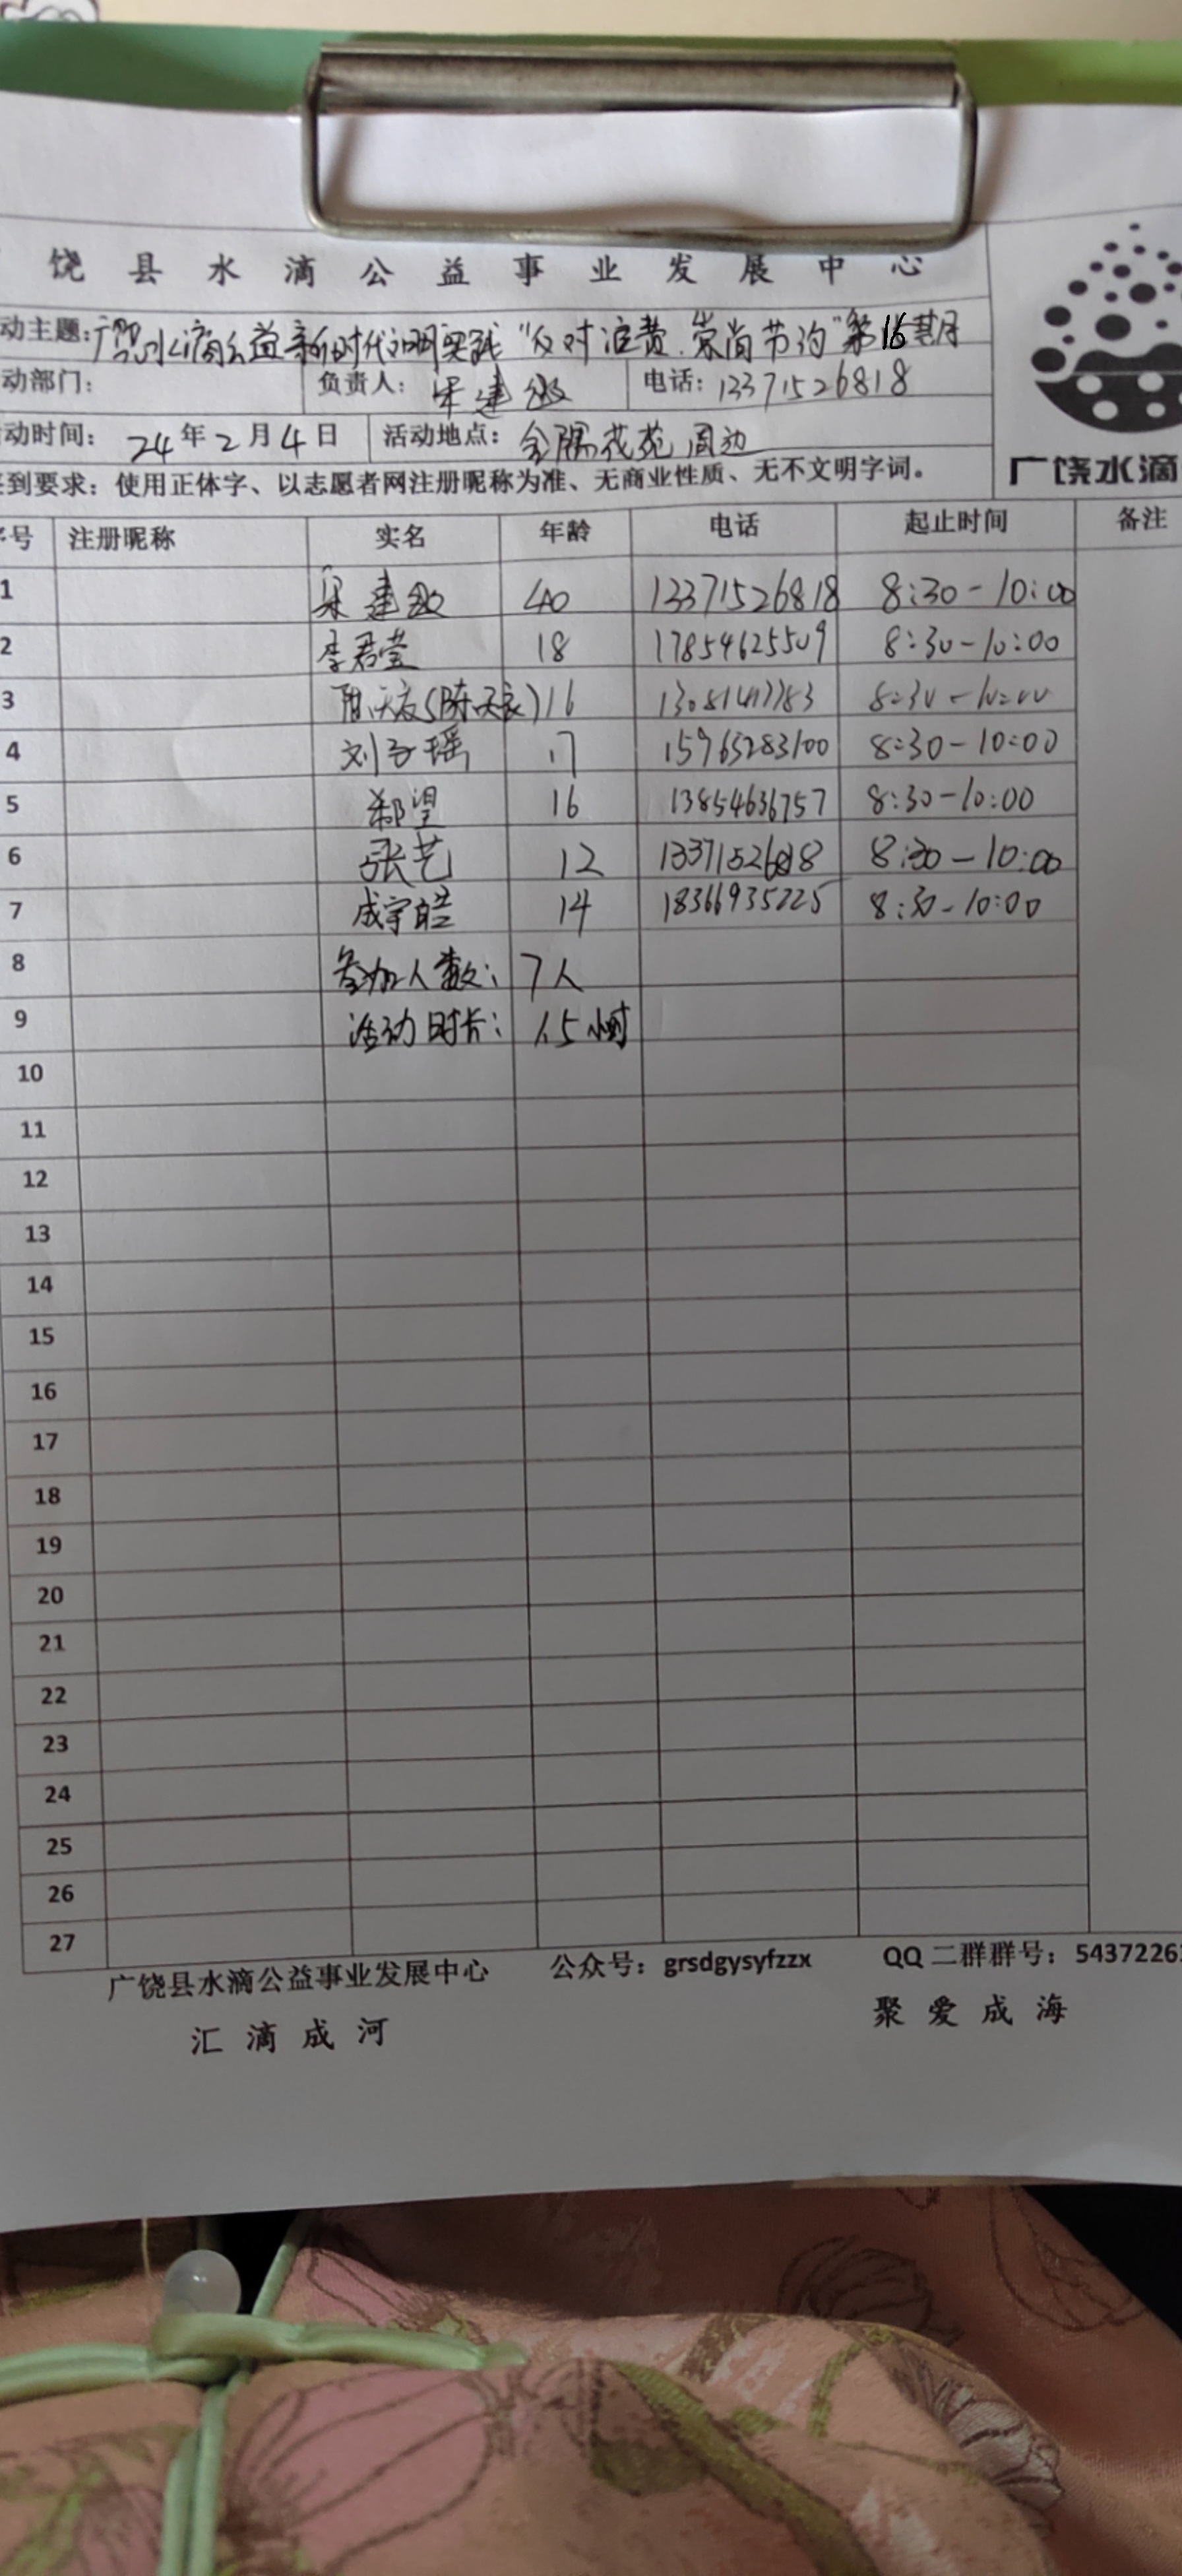 饶县水滴公益事业发展中心
动主题:广饶水滴公益新时代文明实践"反对浪费.崇尚节约"第16期
动部门: 负责人: 建 电话: 13371526818
动时间: 24年2月4日 活动地点: 花苑周边
到要求: 使用正体字、以志愿者网注册昵称为准、无商业性质、无不文明字词。
广饶水滴
号 注册昵称 实名 年龄 电话 起止时间 备注
1 梁建 40 13371526818 8:30-10:00
2 李君莹 18 17854625509 8:30-10:00
3 (陈天 ) 16 8:30-10:00
4 刘子瑶 17 15965283100 8:30-10:00
5 郗望 16 13854636757 8:30-10:00
6 张艺 12 13371526818 8:30-10:00
7 成宇皓 14 18366935225 8:30-10:00
8 参加人数: 7人
9 活动时长: 1.5小时
10
11
12
13
14
15
16
17
18
19
20
21
22
23
24
25
26
27
广饶县水滴公益事业发展中心 公众号: grsdgysyfzzx QQ二群群号: 5437226
汇滴成河 聚爱成海